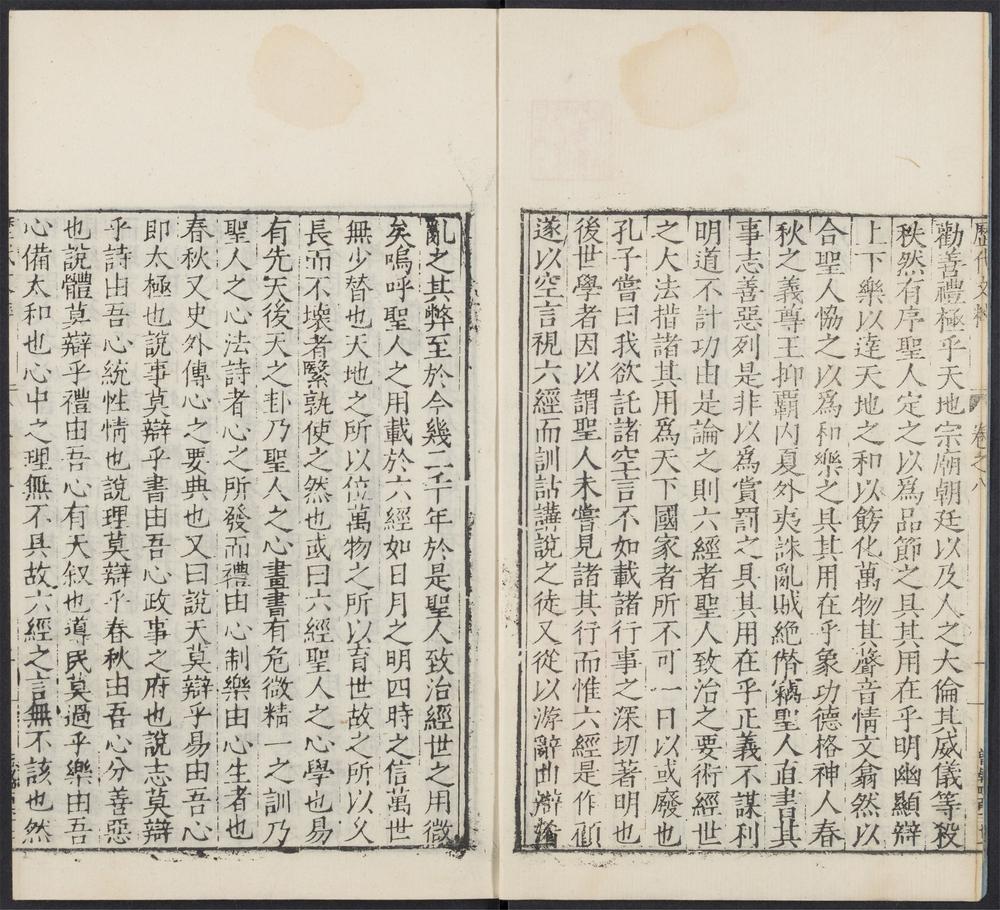 歷代文粹 卷之八
勸善禮極乎天地宗廟朝廷以及人之大倫其威儀等殺
秩然有序聖人定之以爲品節之具其用在乎明幽顯辯
上下樂以達天地之和以飭化萬物其聲音情文翕然以
合聖人恊之以爲和樂之具其用在乎象功德格神人春
秋之義尊王抑覇内夏外夷誅亂賊絶僭竊聖人直書其
事志善惡列是非以爲賞罰之具其用在乎正義不謀利
明道不計功由是論之則六經者聖人致治之要術經世
之大法措諸其用爲天下國家者所不可一日以或廢也
孔子嘗曰我欲託諸空言不如載諸行事之深切著明也
後世學者因以謂聖人未嘗見諸其行而惟六經是作顧
遂以空言視六經而訓詁講說之徒又從以游辭曲辯
亂之其弊至於今幾二千年於是聖人致治經世之用微
矣嗚呼聖人之用載於六經如日月之明四時之信萬世
無少替也天地之所以位萬物之所以育世故之所以久
長而不壞者繄孰使之然也或曰六經聖人之心學也易
有先天後天之卦乃聖人之心畫書有危微精一之訓乃
聖人之心法詩者心之所發而禮由心制樂由心生者也
春秋又史外傳心之要典也又曰說天莫辯乎易由吾心
即太極也說事莫辯乎書由吾心政事之府也說志莫辯
乎詩由吾心統性情也說理莫辯乎春秋由吾心分善惡
也說體莫辯乎禮由吾心有天叙也導民莫過乎樂由吾
心備太和也心中之理無不具故六經之言無不該也然